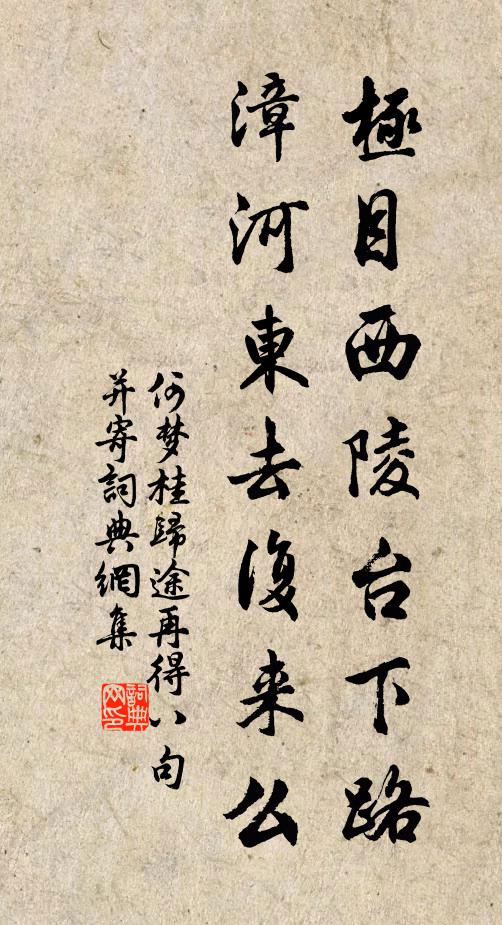 極目西陵台下路
漳河東去復来么
何梦桂歸途再得八句
并寄詞典網集
詞典网印